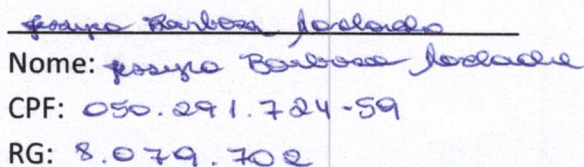 Barbosa
Nome: Barbosa
CPF: 050.291.724-59
RG: 8.079.702